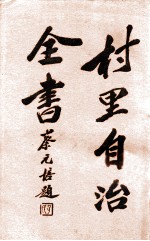 村里自治
全書
蔡元培題